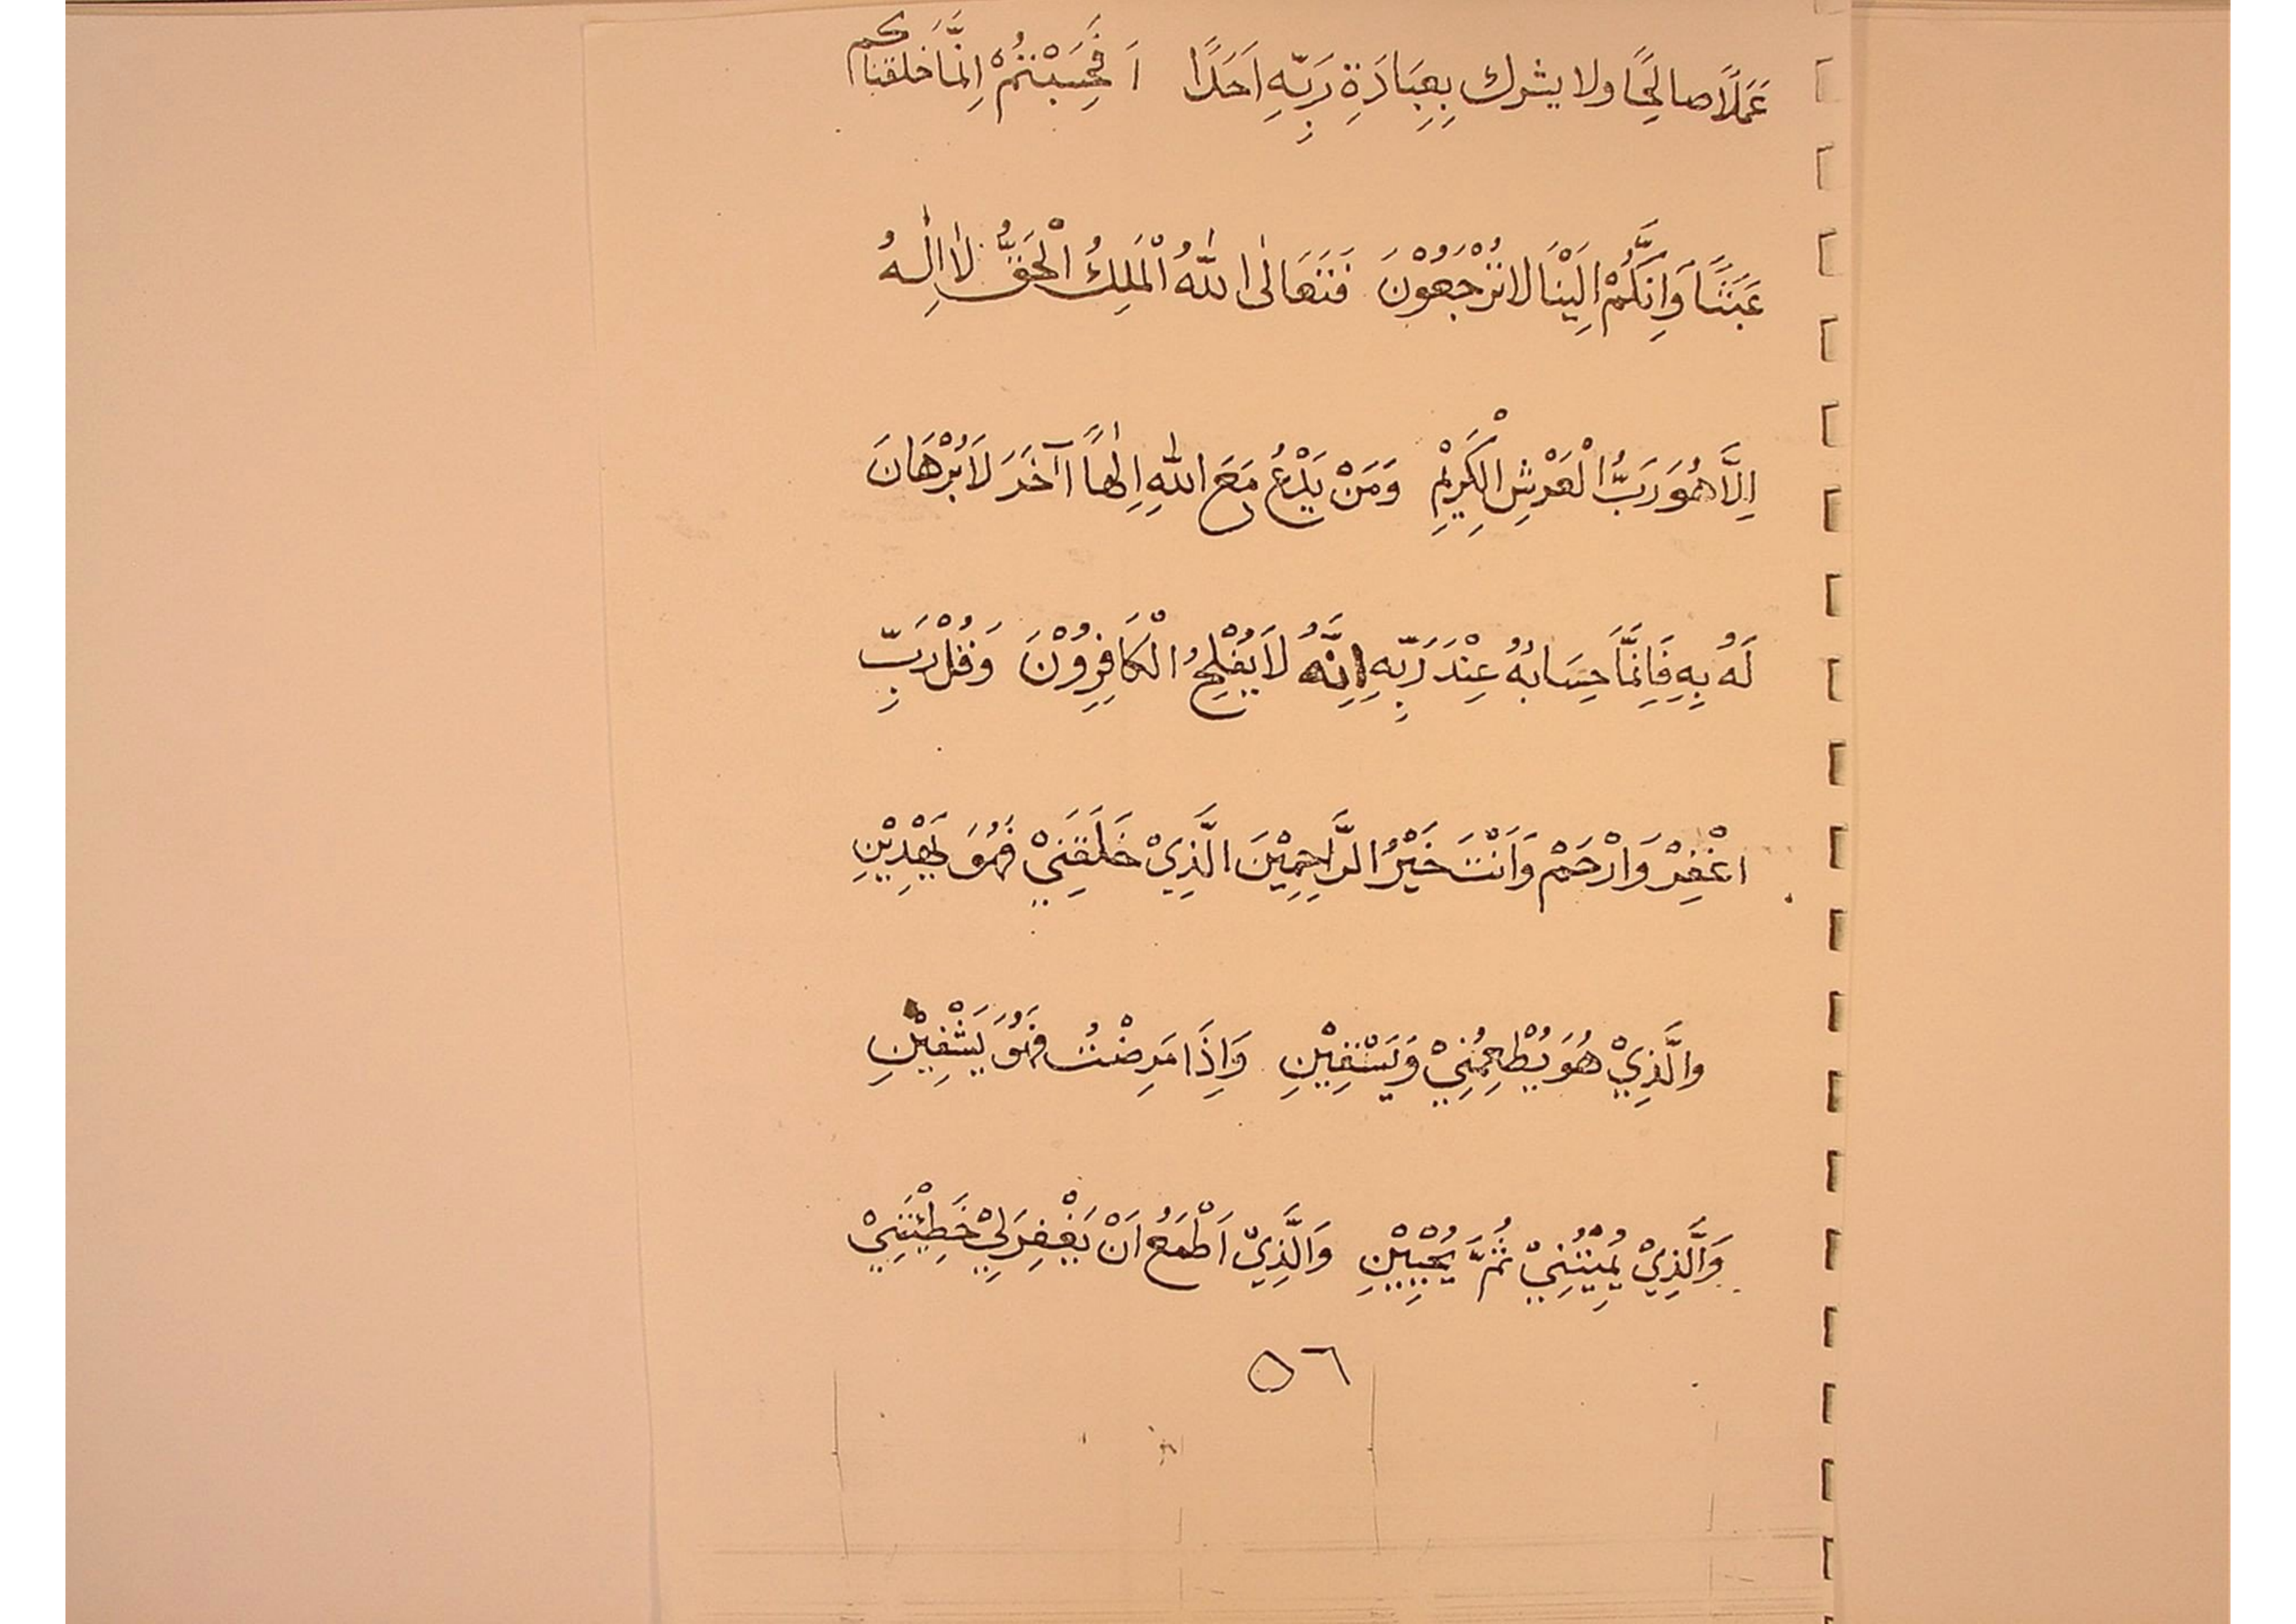 عَمَلًا صالِحًا ولا يشرك بِعِبَادَةِ رَبِّهِ اَحَدًا اَفَحَسِبْتُمْ اِنَّمَا خلقناكم
عَبَثًا وَاِنَّكُمْ اِلَيْنَا لا تُرْجَعُوْنَ فَتَعَالٰى اللّٰهُ الْمَلِكُ الْحَقُّ لاٰ اِلٰهُ
اِلَّا هُوَ رَبُّ الْعَرْشِ الْكَرِيْمِ وَمَنْ يَدْعُ مَعَ اللّٰهِ اِلٰهاً آخَرَ لَا بُرْهَانَ
لَهُ بِهِ فَاِنَّمَا حِسَابُهُ عِنْدَ رَبِّهِ اِنَّهُ لَا يُفْلِحُ الْكَافِرُوْنَ وَقُلْ رَبِّ
اغْفِرْ وَارْحَمْ وَاَنْتَ خَيْرُ الرَّاحِمِيْنَ الَّذِيْ خَلَقَنِيْ فَهُوَ يَهْدِيْنِ
والَّذِيْ هُوَ يُطْعِمُنِيْ وَيَسْقِيْنِ وَاِذَا مَرِضْتُ فَهُوَ يَشْفِيْنِ
وَالَّذِيْ يُمِيْتُنِيْ ثُمَّ يُحْيِيْنِ وَالَّذِيْ اَطْمَعُ اَنْ يَغْفِرَ لِيْ خَطِيْئَتِيْ
٥٦